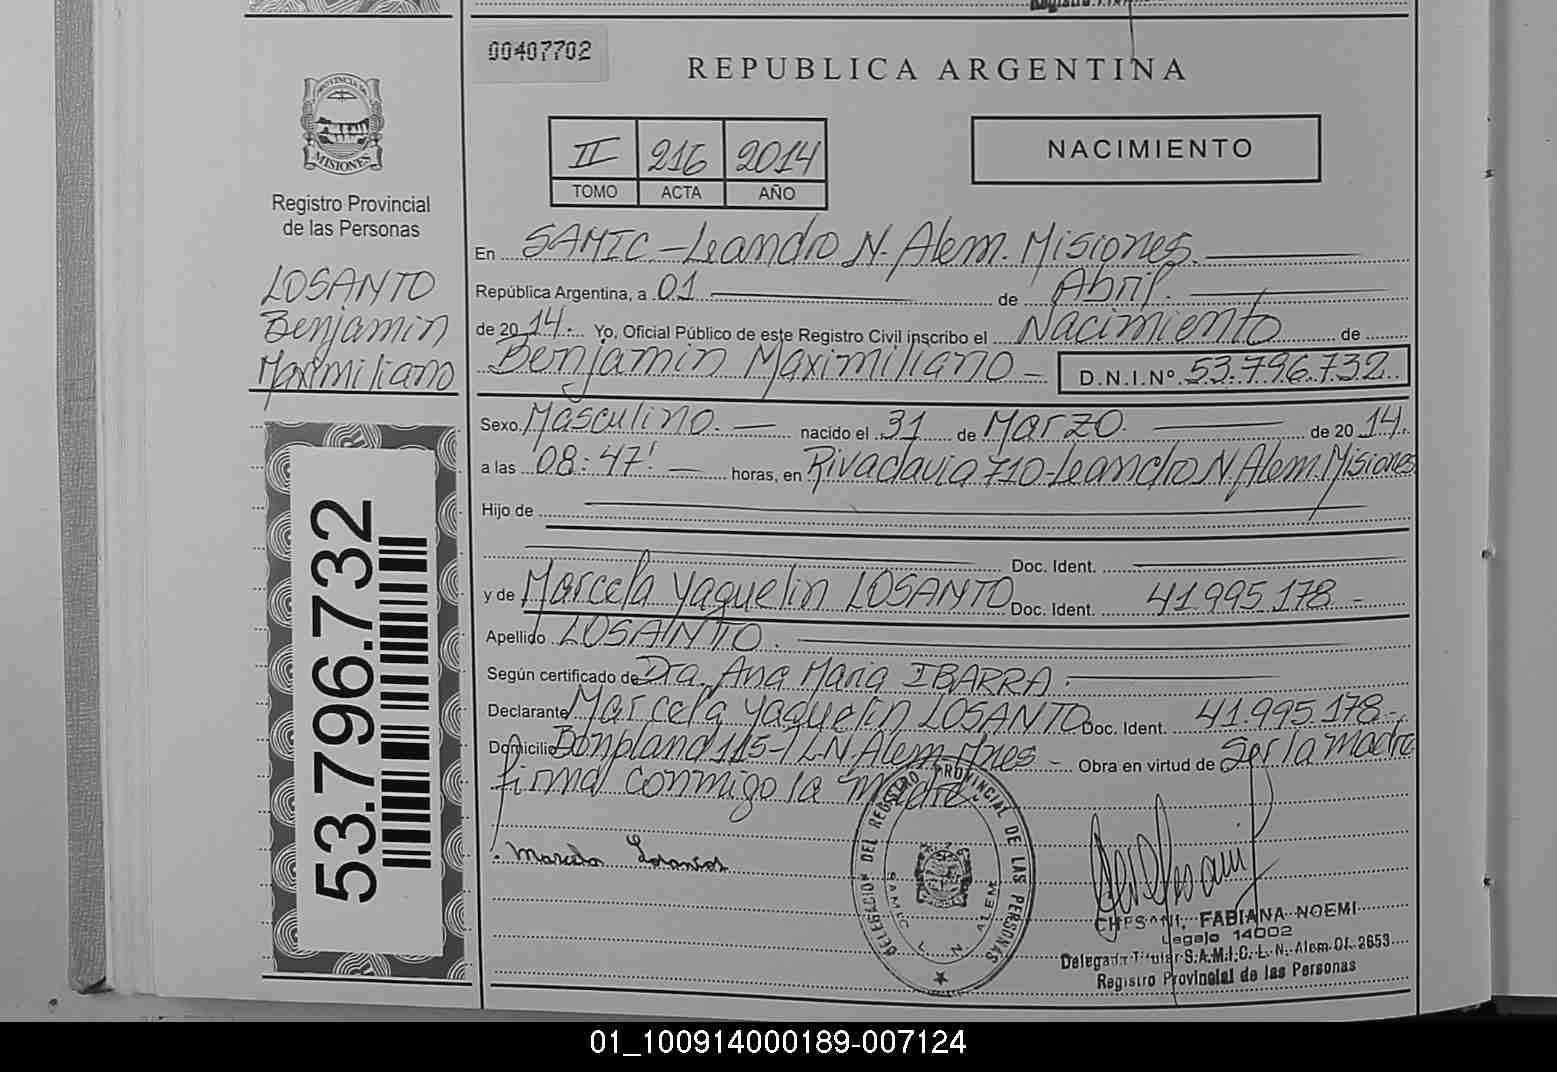 00407702
REPUBLICA ARGENTINA
PROVINCIA DE
MISIONES
Registro Provincial
de las Personas
LOSANTO
Benjamin
Maximiliano
53.796.732
II 216 2014
TOMO ACTA AÑO
NACIMIENTO
En SAMIC - Leandro N. Alem. Misiones.
República Argentina, a 01 de Abril.
de 2014. Yo, Oficial Público de este Registro Civil inscribo el Nacimiento de
Benjamin Maximiliano - D.N.I.Nº. 53.796.732
Sexo Masculino. nacido el 31 de Marzo. de 2014.
a las 08:47' horas, en Rivadavia 710-Leandro N. Alem. Misiones
Hijo de
Doc. Ident.
y de Marcela Yaquelin LOSANTO Doc. Ident. 41.995.178-
Apellido LOSANTO.
Según certificado de Dra. Ana Maria IBARRA.
Declarante Marcela Yaquelin LOSANTO Doc. Ident. 41.995.178-
Domicilio Bonpland 115- L.N. Alem. Mnes - Obra en virtud de Ser la madre
firma conmigo la Madre.
Marcela Losantos
DELEGACION DEL REGISTRO PROVINCIAL DE LAS PERSONAS
SAMIC L. N. ALEM
FABIANA NOEMI
Legajo 14002
Delegada Titular S.A.M.I.C. L. N. Alem Of. 2653
Registro Provincial de las Personas
01_100914000189-007124